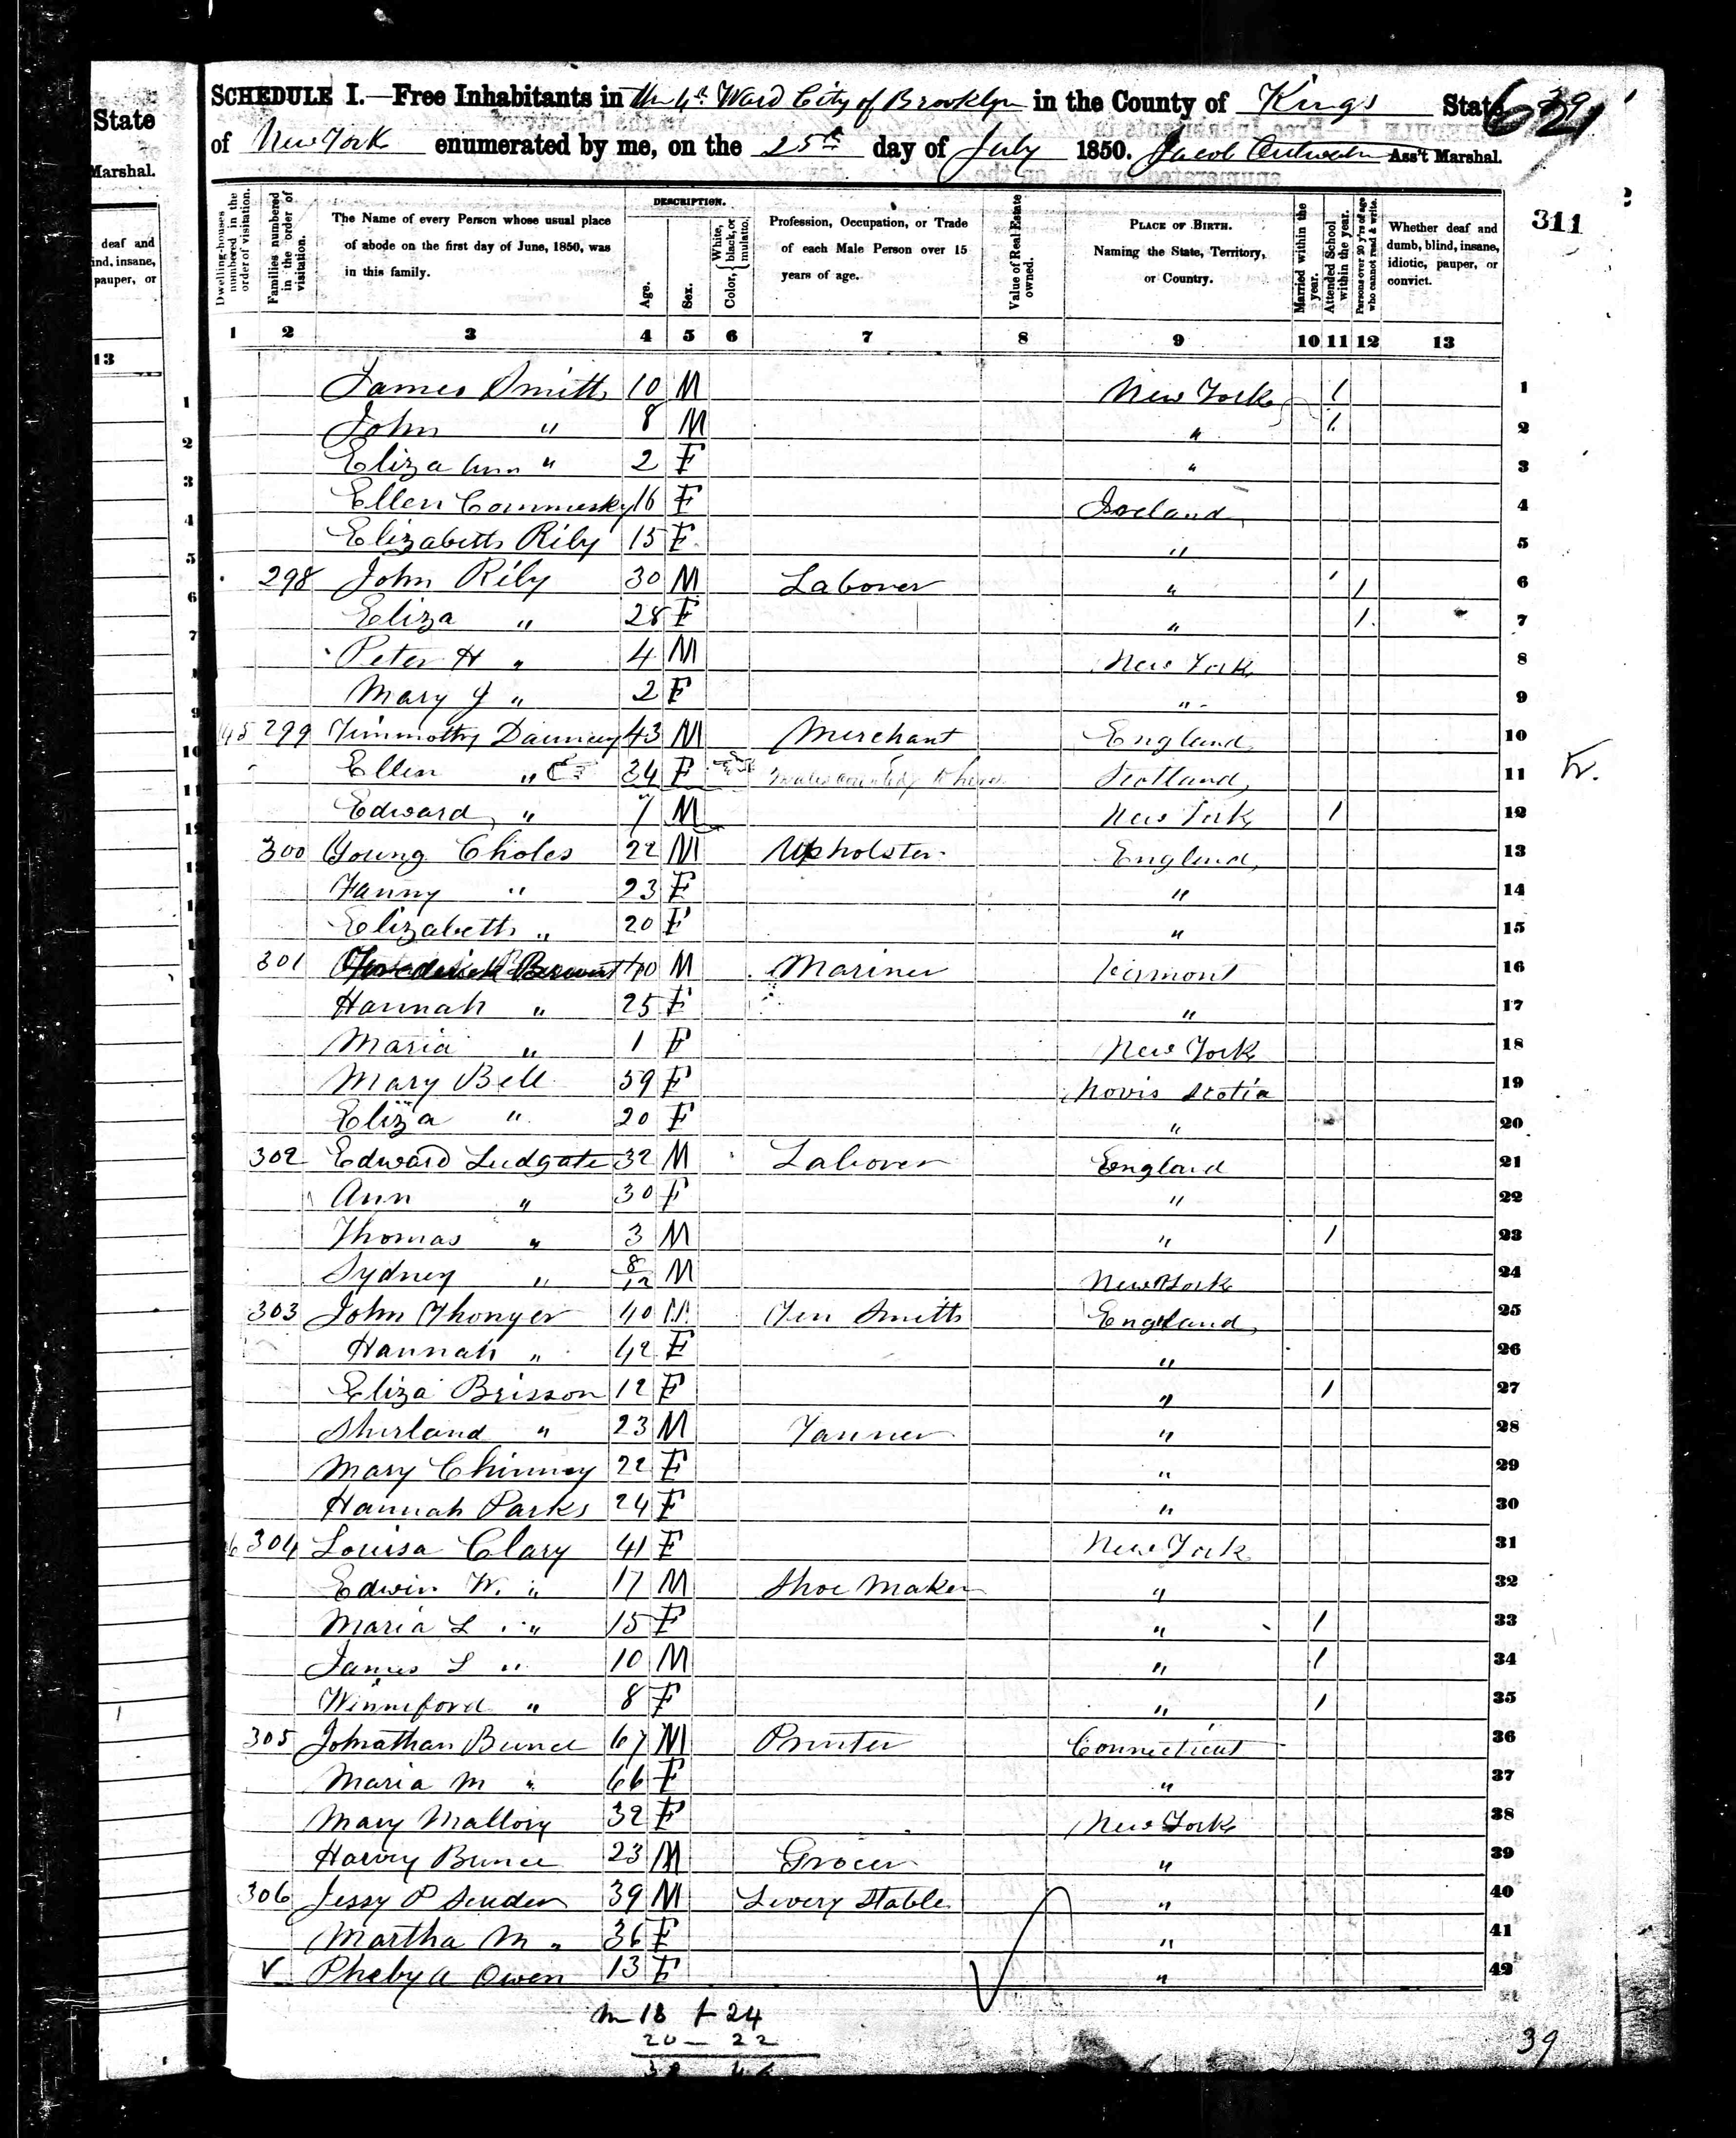 State
Marshal.
deaf and
ind, insane,
pauper, or
13
SCHEDULE I.—Free Inhabitants in the 4th Ward City of Brooklyn in the County of Kings State
of New York enumerated by me, on the 25th day of July 1850. Jacob Ass't Marshal.
39
621
311
Dwelling-houses numbered in the order of visitation.
Families numbered in the order of visitation.
The Name of every Person whose usual place of abode on the first day of June, 1850, was in this family.
DESCRIPTION.
Age.
Sex.
Color, { White, black, or mulatto.
Profession, Occupation, or Trade of each Male Person over 15 years of age.
Value of Real Estate owned.
PLACE OF BIRTH. Naming the State, Territory, or Country.
Married within the year.
Attended School within the year.
Persons over 20 y'rs of age who cannot read & write.
Whether deaf and dumb, blind, insane, idiotic, pauper, or convict.
1 2 3 4 5 6 7 8 9 10 11 12 13
James Smith 10 M New York 1 1
John " 8 M " 1 2
Eliza Ann " 2 F " 3
Ellen Commesky 16 F Ireland 4
Elizabeth Rily 15 F " 5
298 John Rily 30 M Laborer " 1 6
Eliza " 28 F " 1 7
Peter H " 4 M New York 8
Mary J " 2 F " 9
145 299 Timmothy Dauncey 43 M Merchant England 10
Ellen " 34 F Scotland 11
Edward " 7 M New York 1 12
300 Young Choles 22 M Upholster England 13
Fanny " 23 F " 14
Elizabeth " 20 F " 15
301 Frederick 40 M Mariner Vermont 16
Hannah " 25 F " 17
Maria " 1 F New York 18
Mary Bell 59 F Novis Scotia 19
Eliza " 20 F " 20
302 Edward Ludgate 32 M Laborer England 21
Ann " 30 F " 22
Thomas " 3 M " 1 23
Sydney " 8/12 M New York 24
303 John Thonger 40 M Tin Smith England 25
Hannah " 42 F " 26
Eliza Brisson 12 F " 1 27
Shurland " 23 M Tanner " 28
Mary Chinney 22 F " 29
Hannah Parks 24 F " 30
6 304 Louisa Clary 41 F New York 31
Edwin W. " 17 M Shoe Maker " 32
Maria L " 15 F " 1 33
James L " 10 M " 1 34
Winneford " 8 F " 1 35
305 Johnathan Bunce 67 M Printer Connecticut 36
Maria M " 66 F " 37
Mary Mallory 32 F New York 38
Harvy Bunce 23 M Grocer " 39
306 Jessy P Seuder 39 M Livery Stable " 40
Martha M " 36 F " 41
Pheby A Owen 13 F " 42
m 18 f 24
20 — 22
39